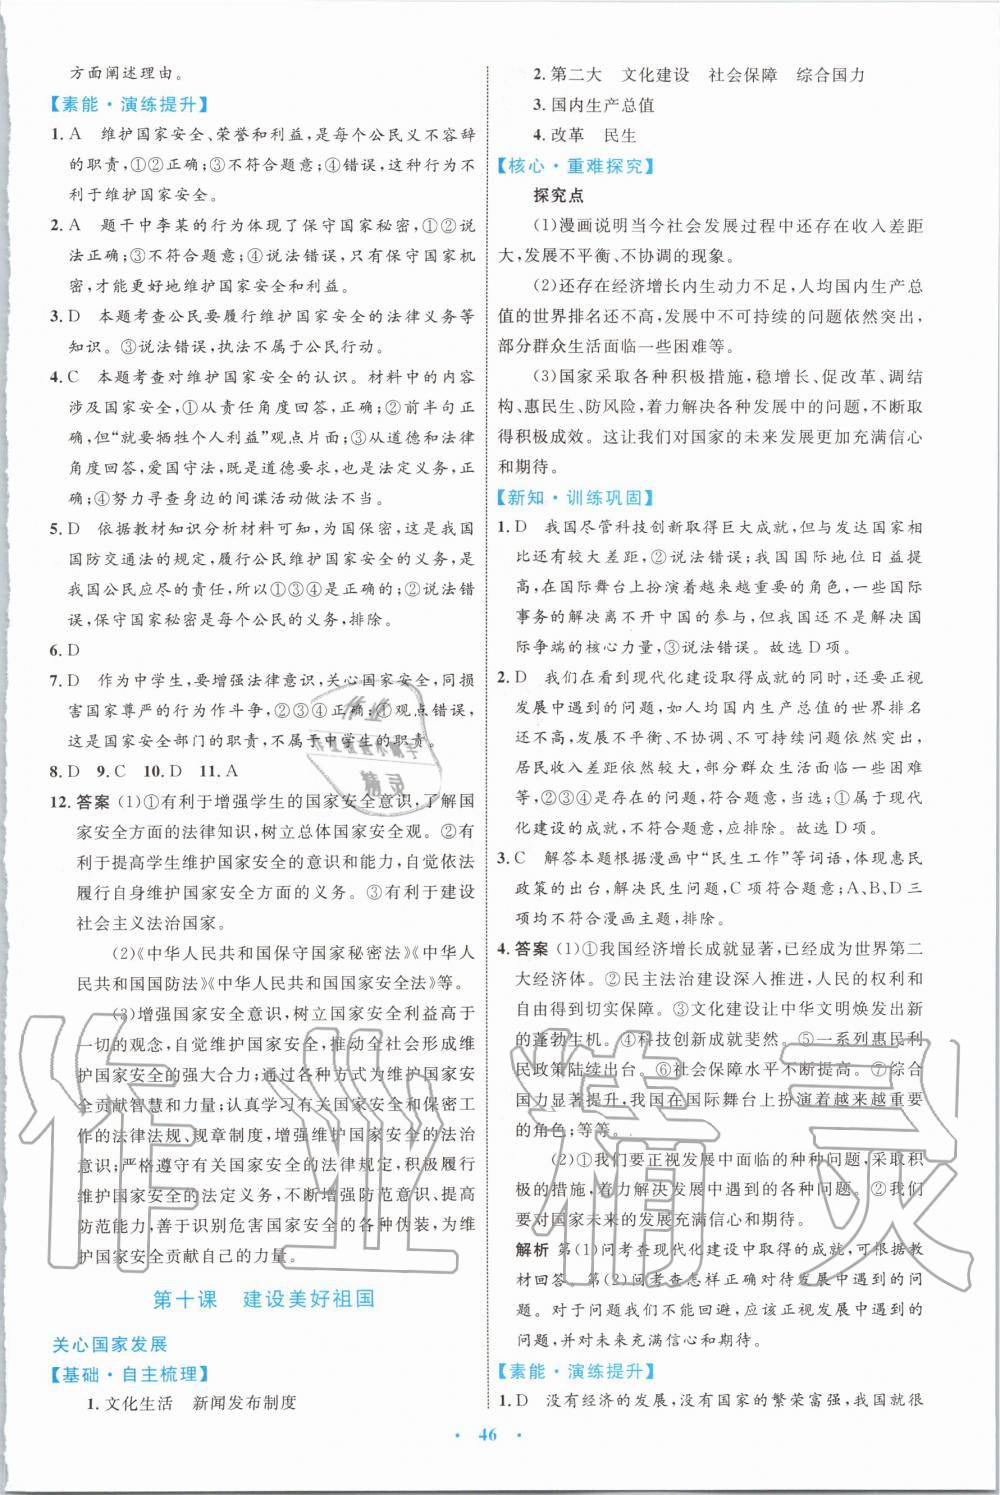 方面阐述理由。
【素能·演练提升】
1. A　维护国家安全、荣誉和利益,是每个公民义不容辞
的职责,①②正确;③不符合题意;④错误,这种行为不
利于维护国家安全。
2. A　题干中李某的行为体现了保守国家秘密,①②说
法正确;③不符合题意;④说法错误,只有保守国家机
密,才能更好地维护国家安全和利益。
3. D　本题考查公民要履行维护国家安全的法律义务等
知识。③说法错误,执法不属于公民行动。
4. C　本题考查对维护国家安全的认识。材料中的内容
涉及国家安全,①从责任角度回答,正确;②前半句正
确,但“就要牺牲个人利益”观点片面;③从道德和法律
角度回答,爱国守法,既是道德要求,也是法定义务,正
确;④努力寻查身边的间谍活动做法不当。
5. D　依据教材知识分析材料可知,为国保密,这是我国
国防交通法的规定,履行公民维护国家安全的义务,是
我国公民应尽的责任,所以①③④是正确的;②说法错
误,保守国家秘密是每个公民的义务,排除。
6. D
7. D　作为中学生,要增强法律意识,关心国家安全,同损
害国家尊严的行为作斗争,②③④正确;①观点错误,
这是国家安全部门的职责,不属于中学生的职责。
8. D　9. C　10. D　11. A
12. 答案　(1)①有利于增强学生的国家安全意识,了解国
家安全方面的法律知识,树立总体国家安全观。②有
利于提高学生维护国家安全的意识和能力,自觉依法
履行自身维护国家安全方面的义务。③有利于建设
社会主义法治国家。
(2)《中华人民共和国保守国家秘密法》《中华人
民共和国国防法》《中华人民共和国国家安全法》等。
(3)增强国家安全意识,树立国家安全利益高于
一切的观念,自觉维护国家安全,推动全社会形成维护
国家安全的强大合力;通过各种方式为维护国家安
全贡献智慧和力量;认真学习有关国家安全和保密工
作的法律法规、规章制度,增强维护国家安全的法治
意识;严格遵守有关国家安全的法律规定,积极履行
维护国家安全的法定义务,不断增强防范意识、提高
防范能力,善于识别危害国家安全的各种伪装,为维
护国家安全贡献自己的力量。
第十课　建设美好祖国
关心国家发展
【基础·自主梳理】
1. 文化生活　新闻发布制度
2. 第二大　文化建设　社会保障　综合国力
3. 国内生产总值
4. 改革　民生
【核心·重难探究】
探究点
(1)漫画说明当今社会发展过程中还存在收入差距
大,发展不平衡、不协调的现象。
(2)还存在经济增长内生动力不足,人均国内生产总
值的世界排名还不高,发展中不可持续的问题依然突出,
部分群众生活面临一些困难等。
(3)国家采取各种积极措施,稳增长、促改革、调结
构、惠民生、防风险,着力解决各种发展中的问题,不断取
得积极成效。这让我们对国家的未来发展更加充满信心
和期待。
【新知·训练巩固】
1. D　我国尽管科技创新取得巨大成就,但与发达国家相
比还有较大差距,②说法错误;我国国际地位日益提
高,在国际舞台上扮演着越来越重要的角色,一些国际
事务的解决离不开中国的参与,但我国不是解决国
际争端的核心力量,③说法错误。故选 D 项。
2. D　我们在看到现代化建设取得成就的同时,还要正视
发展中遇到的问题,如人均国内生产总值的世界排名
还不高,发展不平衡、不协调、不可持续的问题依然突出,
居民收入差距依然较大,部分群众生活面临一些困难
等,②③④符合题意,应当选;①属于现代
化建设的成就,不符合题意,应排除。故选 D 项。
3. C　解答本题根据漫画中“民生工作”等词语,体现惠民
政策的出台,解决民生问题,C 项符合题意;A、B、D 三
项均不符合漫画主题,排除。
4. 答案　(1)①我国经济增长成就显著,已经成为世界第二
大经济体。②民主法治建设深入推进,人民的权利和
自由得到切实保障。③文化建设让中华文明焕发出新
的蓬勃生机。④科技创新成就斐然。⑤一系列惠民利
民政策陆续出台。⑥社会保障水平不断提高。⑦综合
国力显著提升,我国在国际舞台上扮演着越来越重要
的角色;等等。
(2)①我们要正视发展中面临的种种问题,采取积
极的措施,着力解决发展中遇到的各种问题。②我们
要对国家未来的发展充满信心和期待。
解析　第(1)问考查现代化建设中取得的成就,可根据教
材回答。第(2)问考查怎样正确对待发展中遇到的问
题。对于问题我们不能回避,应该正视发展中遇到的
问题,并对未来充满信心和期待。
【素能·演练提升】
1. D　没有经济的发展,就没有国家的繁荣富强,我国就很
· 46 ·
作业
精灵
作业精灵